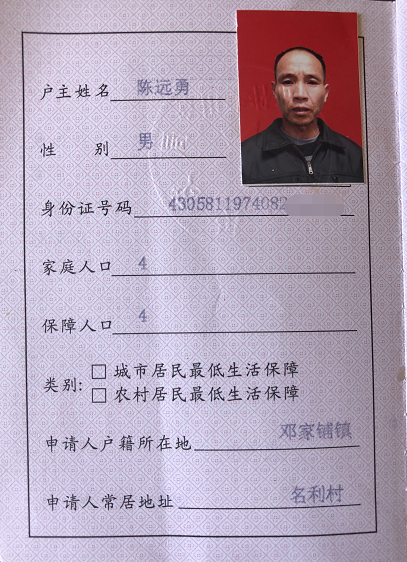 户主姓名 陈远勇
性 别 男
身份证号码 4305811974082
家庭人口 4
保障人口 4
类别: □ 城市居民最低生活保障
□ 农村居民最低生活保障
申请人户籍所在地 邓家铺镇
申请人常居地址 名利村